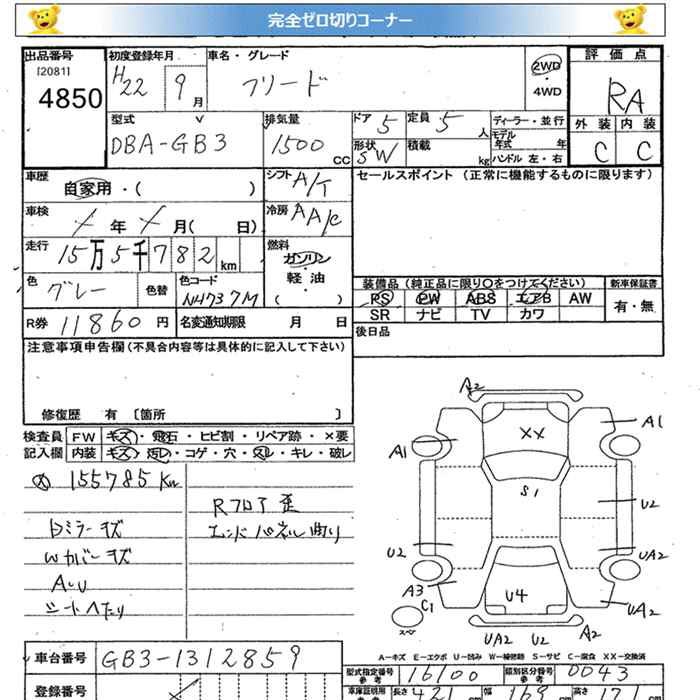 完全ゼロ切りコーナー
出品番号
[2081]
4850
初度登録年月
H22 9月
車名・グレード
フリード
2WD
4WD
評価点
RA
外装 内装
C C
型式
DBA-GB3
排気量
1500 CC
ドア 5
定員 5 人
形状 SW
積載 kg
ディーラー・並行
モデル年式 年
ハンドル 左・右
車歴
自家用・( )
シフト A/T
セールスポイント (正常に機能するものに限ります)
車検
年 月( 日)
冷房 AA/C
走行
15万5千782km
燃料
ガソリン
軽油
( )
色
グレー
色替
色コード
N4737M
装備品 (純正品に限り〇をつけてください)
新車保証書
PS PW ABS エアB AW
SR ナビ TV カワ
有・無
R券 11860 円
名変通知期限 月 日
後日品
注意事項申告欄 (不具合内容等は具体的に記入して下さい)
修復歴 有 〔箇所 〕
検査員 FW キズ・飛石・ヒビ割・リペア跡・×要
記入欄 内装 キズ・汚レ・コゲ・穴・スレ・キレ・破レ
155785 Km
Rフロア歪
エンドパネル曲り
Dミラーキズ
Wカバーキズ
A・U
シートヘタリ
A2
A1
XX
A1
S1
U2
U2
UA2
A3
C1
U4
UA2
スペア
UA2 U2 A2
A-キズ E-エクボ U-凹み W-補修跡 S-サビ C-腐食 XX-交換済
車台番号 GB3-1312859
型式指定番号 参考 16100
類別区分番号 参考 0043
登録番号
車庫証明用 参考
長さ 421 cm
幅 169 cm
高さ 171 cm